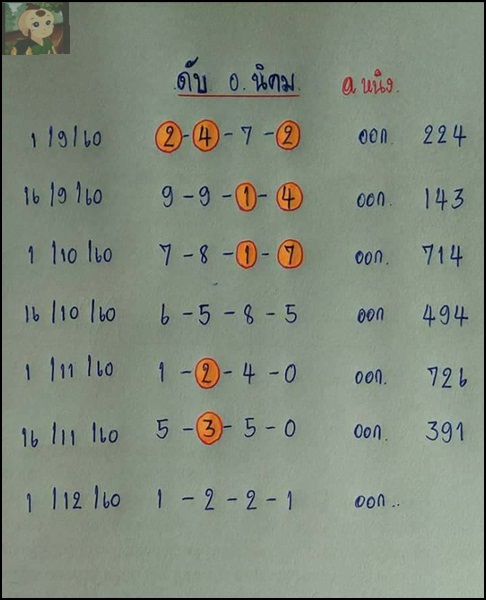 ดับ อ.นิคม. a หนิง.
1/9/60 2-4-7-2 ออก. 224
16/9/60 9-9-1-4 ออก. 143
1/10/60 7-8-1-7 ออก. 714
16/10/60 6-5-8-5 ออก 494
1/11/60 1-2-4-0 ออก. 726
16/11/60 5-3-5-0 ออก. 391
1/12/60 1-2-2-1 ออก..